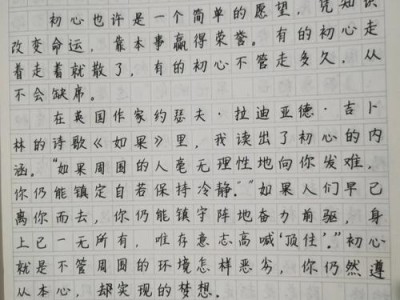 初心也许是一个简单的愿望，凭知识
改变命运，靠本事赢得荣誉。有的初心走
着走着就散了，有的初心不管走多久，从
不会缺席。
在英国作家约瑟夫·拉迪亚德·吉卜
林的诗歌《如果》里，我读出了初心的内
涵。“如果周围的人毫无理性地向你发难，
你仍能镇定自若保持冷静。”“如果人们早已
离你而去，你仍能镇守阵地奋力前驱，身
上已一无所有，唯存意志高喊‘顶住’。”初心
就是不管周围的环境怎样恶劣，你仍然遵
从本心，却实现的梦想。